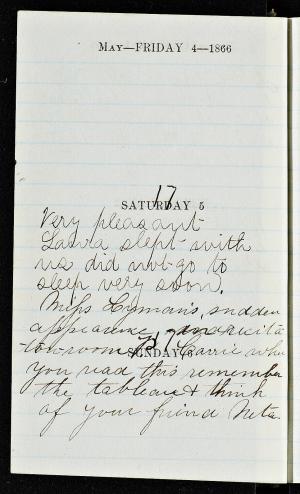 MAY—FRIDAY 4—1866
SATURDAY 5
17
Very pleasant
Laura slept with
us did not go to
sleep very soon.
Miss Lyman's, sudden
appearance, in recita-
tion-room B. Carrie when
SUNDAY 6
you read this remember
the tableau & think
of your friend Neta.